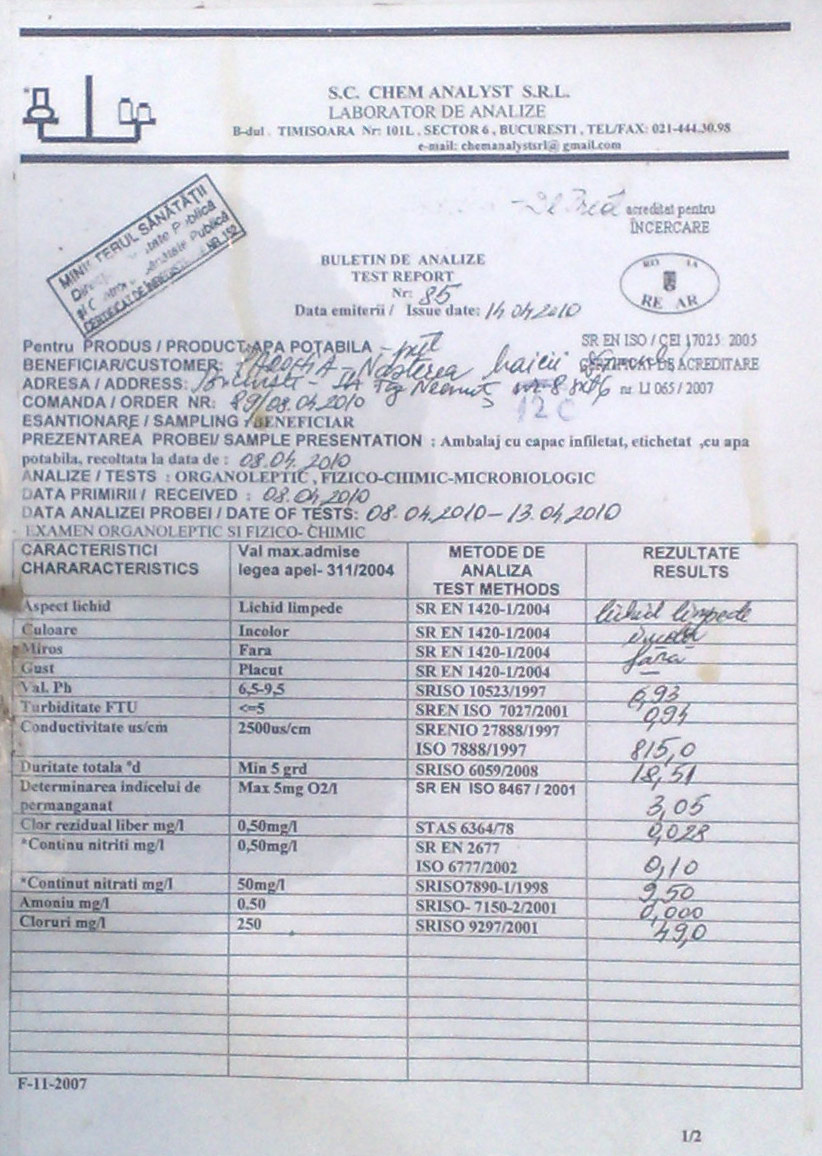 S.C. CHEM ANALYST S.R.L.
LABORATOR DE ANALIZE
B-dul . TIMISOARA Nr: 101L , SECTOR 6 , BUCURESTI , TEL/FAX: 021-444.30.98
e-mail: chemanalystsrl@ gmail.com
MINISTERUL SĂNĂTĂȚII
Publică
Publică
CERTIFICAT DE NR. 152
acreditat pentru
ÎNCERCARE
RE AR
BULETIN DE ANALIZE
TEST REPORT
Nr: 85
Data emiterii / Issue date: 14 04 2010
SR EN ISO / CEI 17025 2005
CERTIFICAT DE ACREDITARE
nr. LI 065 / 2007
Pentru PRODUS / PRODUCT APA POTABILA - puț
BENEFICIAR/CUSTOMER: Nașterea Maicii
ADRESA / ADDRESS: București - Tg Neamț nr 8 sect 6
12 C
COMANDA / ORDER NR: 89/08.04.2010
ESANTIONARE / SAMPLING / BENEFICIAR
PREZENTAREA PROBEI/ SAMPLE PRESENTATION : Ambalaj cu capac infiletat, etichetat ,cu apa
potabila, recoltata la data de : 08.04. 2010
ANALIZE / TESTS : ORGANOLEPTIC , FIZICO-CHIMIC-MICROBIOLOGIC
DATA PRIMIRII / RECEIVED : 08.04.2010
DATA ANALIZEI PROBEI / DATE OF TESTS: 08.04.2010 - 13.04.2010
EXAMEN ORGANOLEPTIC SI FIZICO- CHIMIC
CARACTERISTICI CHARARACTERISTICS Val max.admise legea apei- 311/2004 METODE DE ANALIZA TEST METHODS REZULTATE RESULTS
Aspect lichid Lichid limpede SR EN 1420-1/2004 lichid limpede
Culoare Incolor SR EN 1420-1/2004 incolor
Miros Fara SR EN 1420-1/2004 fara
Gust Placut SR EN 1420-1/2004 —
Val. Ph 6,5-9,5 SRISO 10523/1997 6,93
Turbiditate FTU <=5 SREN ISO 7027/2001 0,94
Conductivitate us/cm 2500us/cm SRENIO 27888/1997
ISO 7888/1997 815,0
Duritate totala °d Min 5 grd SRISO 6059/2008 18,51
Determinarea indicelui de Max 5mg O2/l SR EN ISO 8467 / 2001
permanganat 3,05
Clor rezidual liber mg/l 0,50mg/l STAS 6364/78 0,028
*Continu nitriti mg/l 0,50mg/l SR EN 2677
ISO 6777/2002 0,10
*Continut nitrati mg/l 50mg/l SRISO7890-1/1998 9,50
Amoniu mg/l 0.50 SRISO- 7150-2/2001 0,000
Cloruri mg/l 250 SRISO 9297/2001 49,0
F-11-2007
1/2